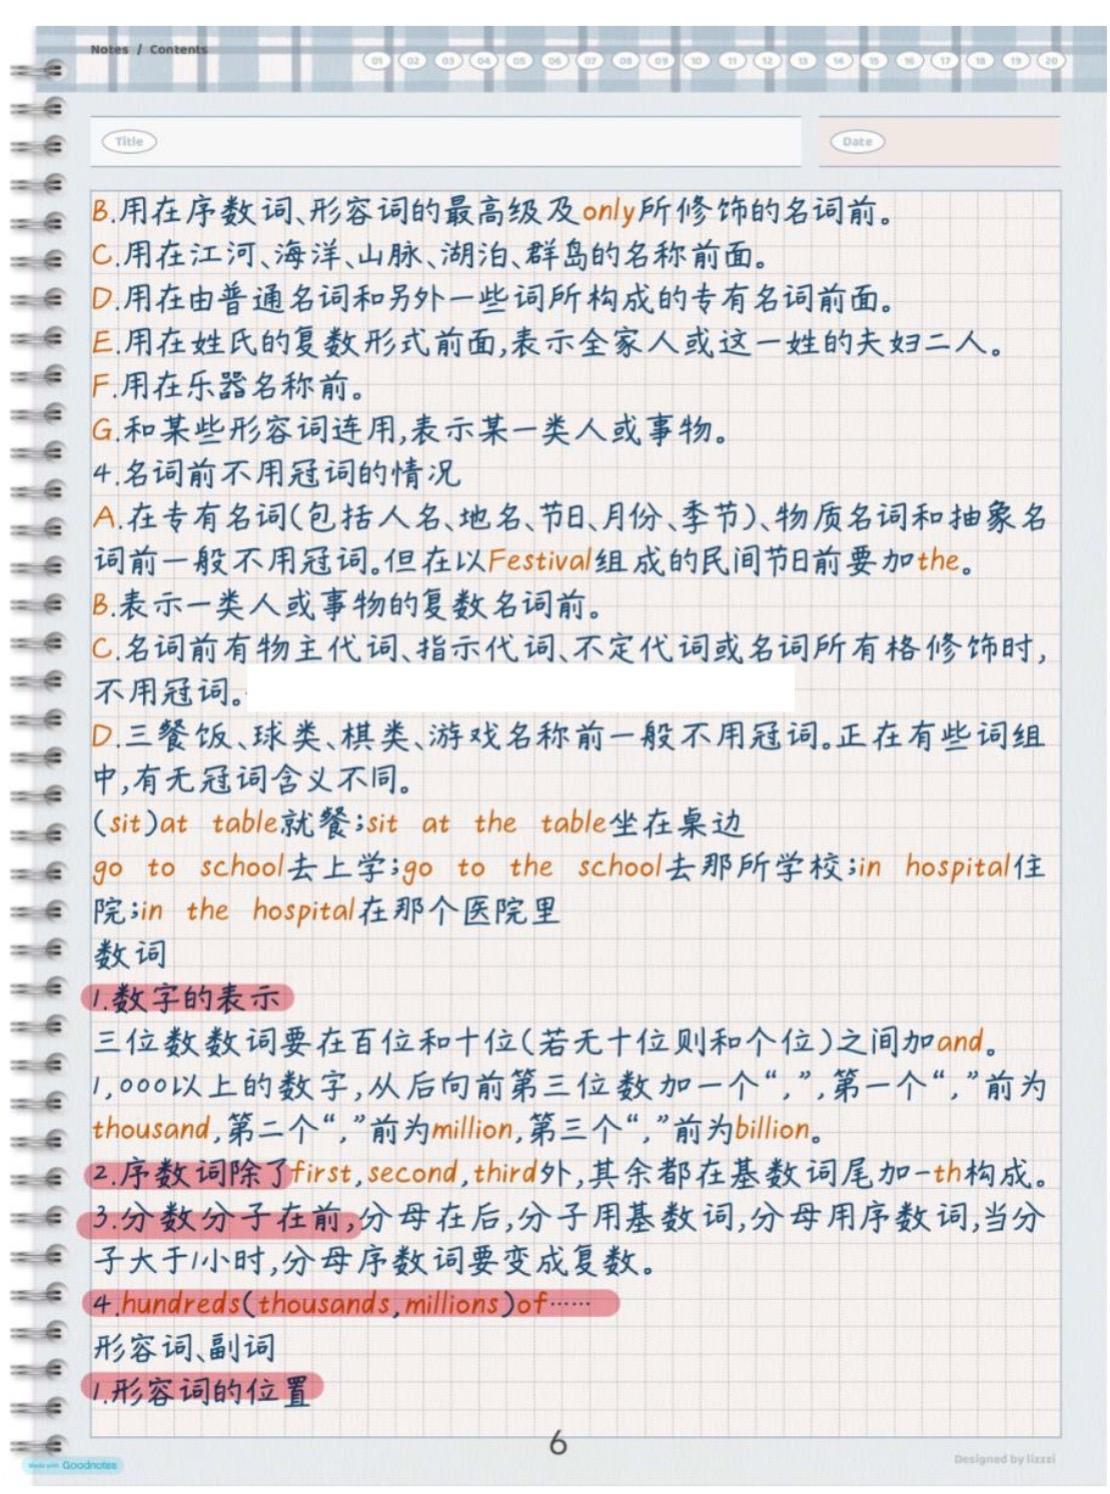 Notes / Contents
01 02 03 04 05 06 07 08 09 10 11 12 13 14 15 16 17 18 19 20
Title Date
B.用在序数词、形容词的最高级及only所修饰的名词前。
C.用在江河、海洋、山脉、湖泊、群岛的名称前面。
D.用在由普通名词和另外一些词所构成的专有名词前面。
E.用在姓氏的复数形式前面,表示全家人或这一姓的夫妇二人。
F.用在乐器名称前。
G.和某些形容词连用,表示某一类人或事物。
4.名词前不用冠词的情况
A.在专有名词(包括人名、地名、节日、月份、季节)、物质名词和抽象名
词前一般不用冠词。但在以Festival组成的民间节日前要加the。
B.表示一类人或事物的复数名词前。
C.名词前有物主代词、指示代词、不定代词或名词所有格修饰时,
不用冠词。
D.三餐饭、球类、棋类、游戏名称前一般不用冠词。正在有些词组
中,有无冠词含义不同。
(sit)at table就餐;sit at the table坐在桌边
go to school去上学;go to the school去那所学校;in hospital住
院;in the hospital在那个医院里
数词
1.数字的表示
三位数数词要在百位和十位(若无十位则和个位)之间加and。
1,000以上的数字,从后向前第三位数加一个“,”,第一个“,”前为
thousand,第二个“,”前为million,第三个“,”前为billion。
2.序数词除了first,second,third外,其余都在基数词尾加-th构成。
3.分数分子在前,分母在后,分子用基数词,分母用序数词,当分
子大于1小时,分母序数词要变成复数。
4.hundreds(thousands,millions)of……
形容词、副词
1.形容词的位置
6
Made with Goodnotes
Designed by lizzzi